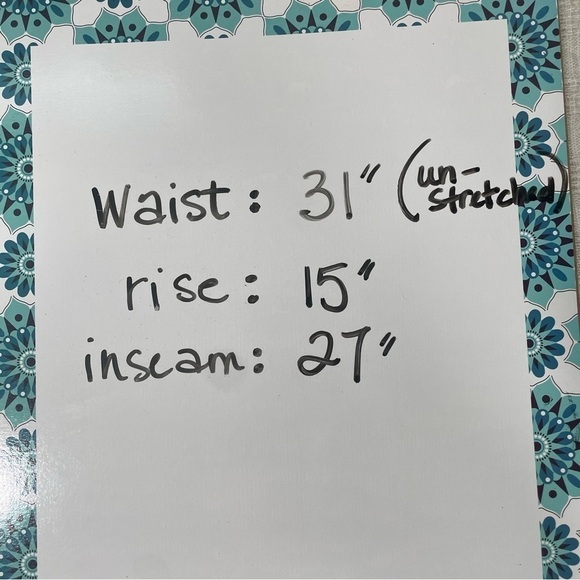 Waist: 31" (un-
stretched)
rise: 15"
inseam: 27"